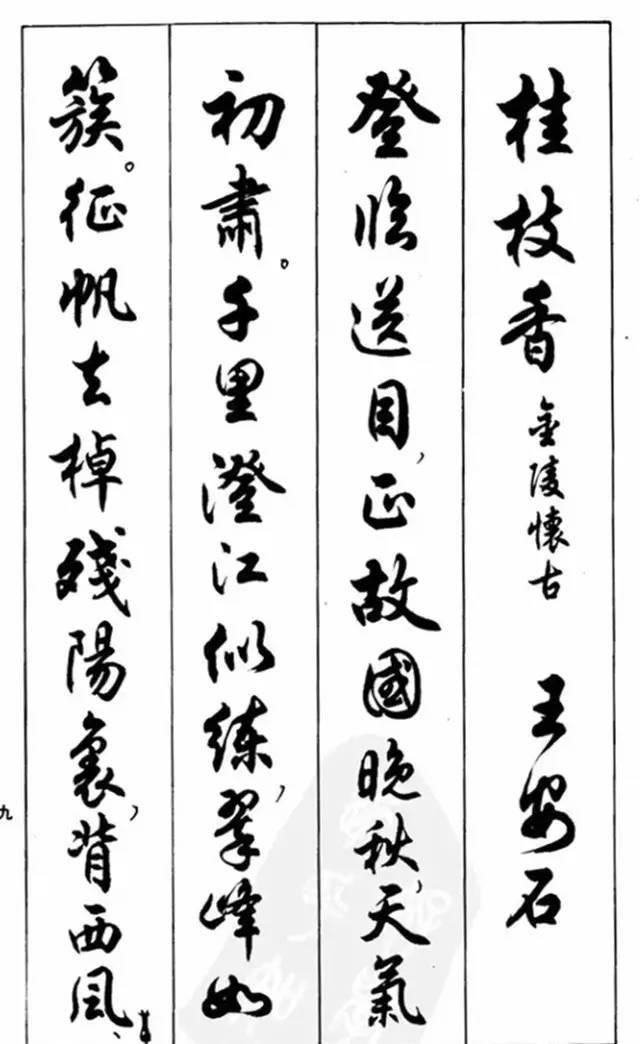 桂枝香 金陵懷古 王安石
登臨送目，正故國晚秋，天氣
初肅。千里澄江似練，翠峰如
簇。征帆去棹殘陽裏，背西風、
九